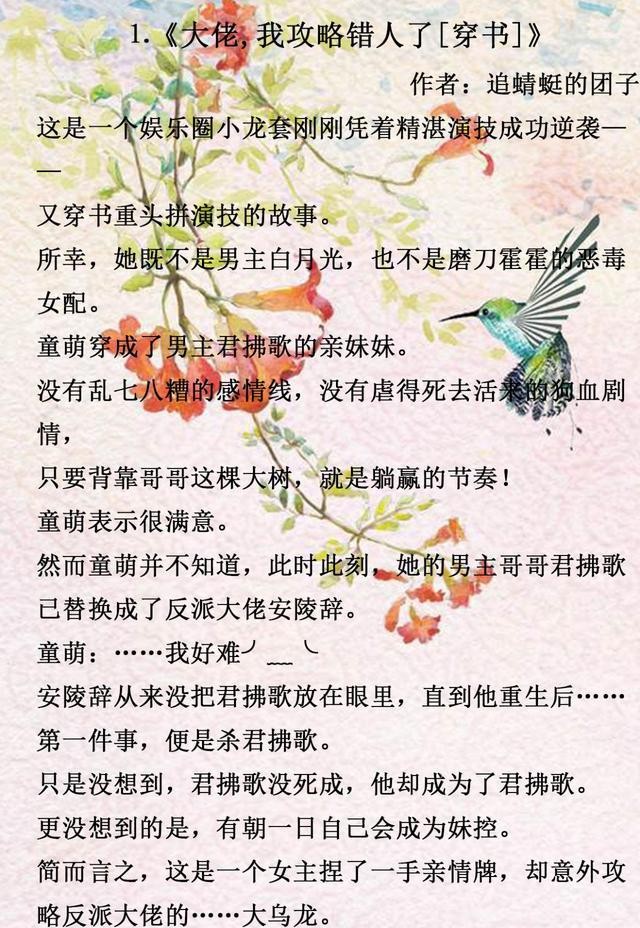 1.《大佬,我攻略错人了[穿书]》
作者：追蜻蜓的团子
这是一个娱乐圈小龙套刚刚凭着精湛演技成功逆袭—
—
又穿书重头拼演技的故事。
所幸，她既不是男主白月光，也不是磨刀霍霍的恶毒
女配。
童萌穿成了男主君拂歌的亲妹妹。
没有乱七八糟的感情线，没有虐得死去活来的狗血剧
情，
只要背靠哥哥这棵大树，就是躺赢的节奏！
童萌表示很满意。
然而童萌并不知道，此时此刻，她的男主哥哥君拂歌
已替换成了反派大佬安陵辞。
童萌：……我好难╯﹏╰
安陵辞从来没把君拂歌放在眼里，直到他重生后……
第一件事，便是杀君拂歌。
只是没想到，君拂歌没死成，他却成为了君拂歌。
更没想到的是，有朝一日自己会成为妹控。
简而言之，这是一个女主捏了一手亲情牌，却意外攻
略反派大佬的……大乌龙。